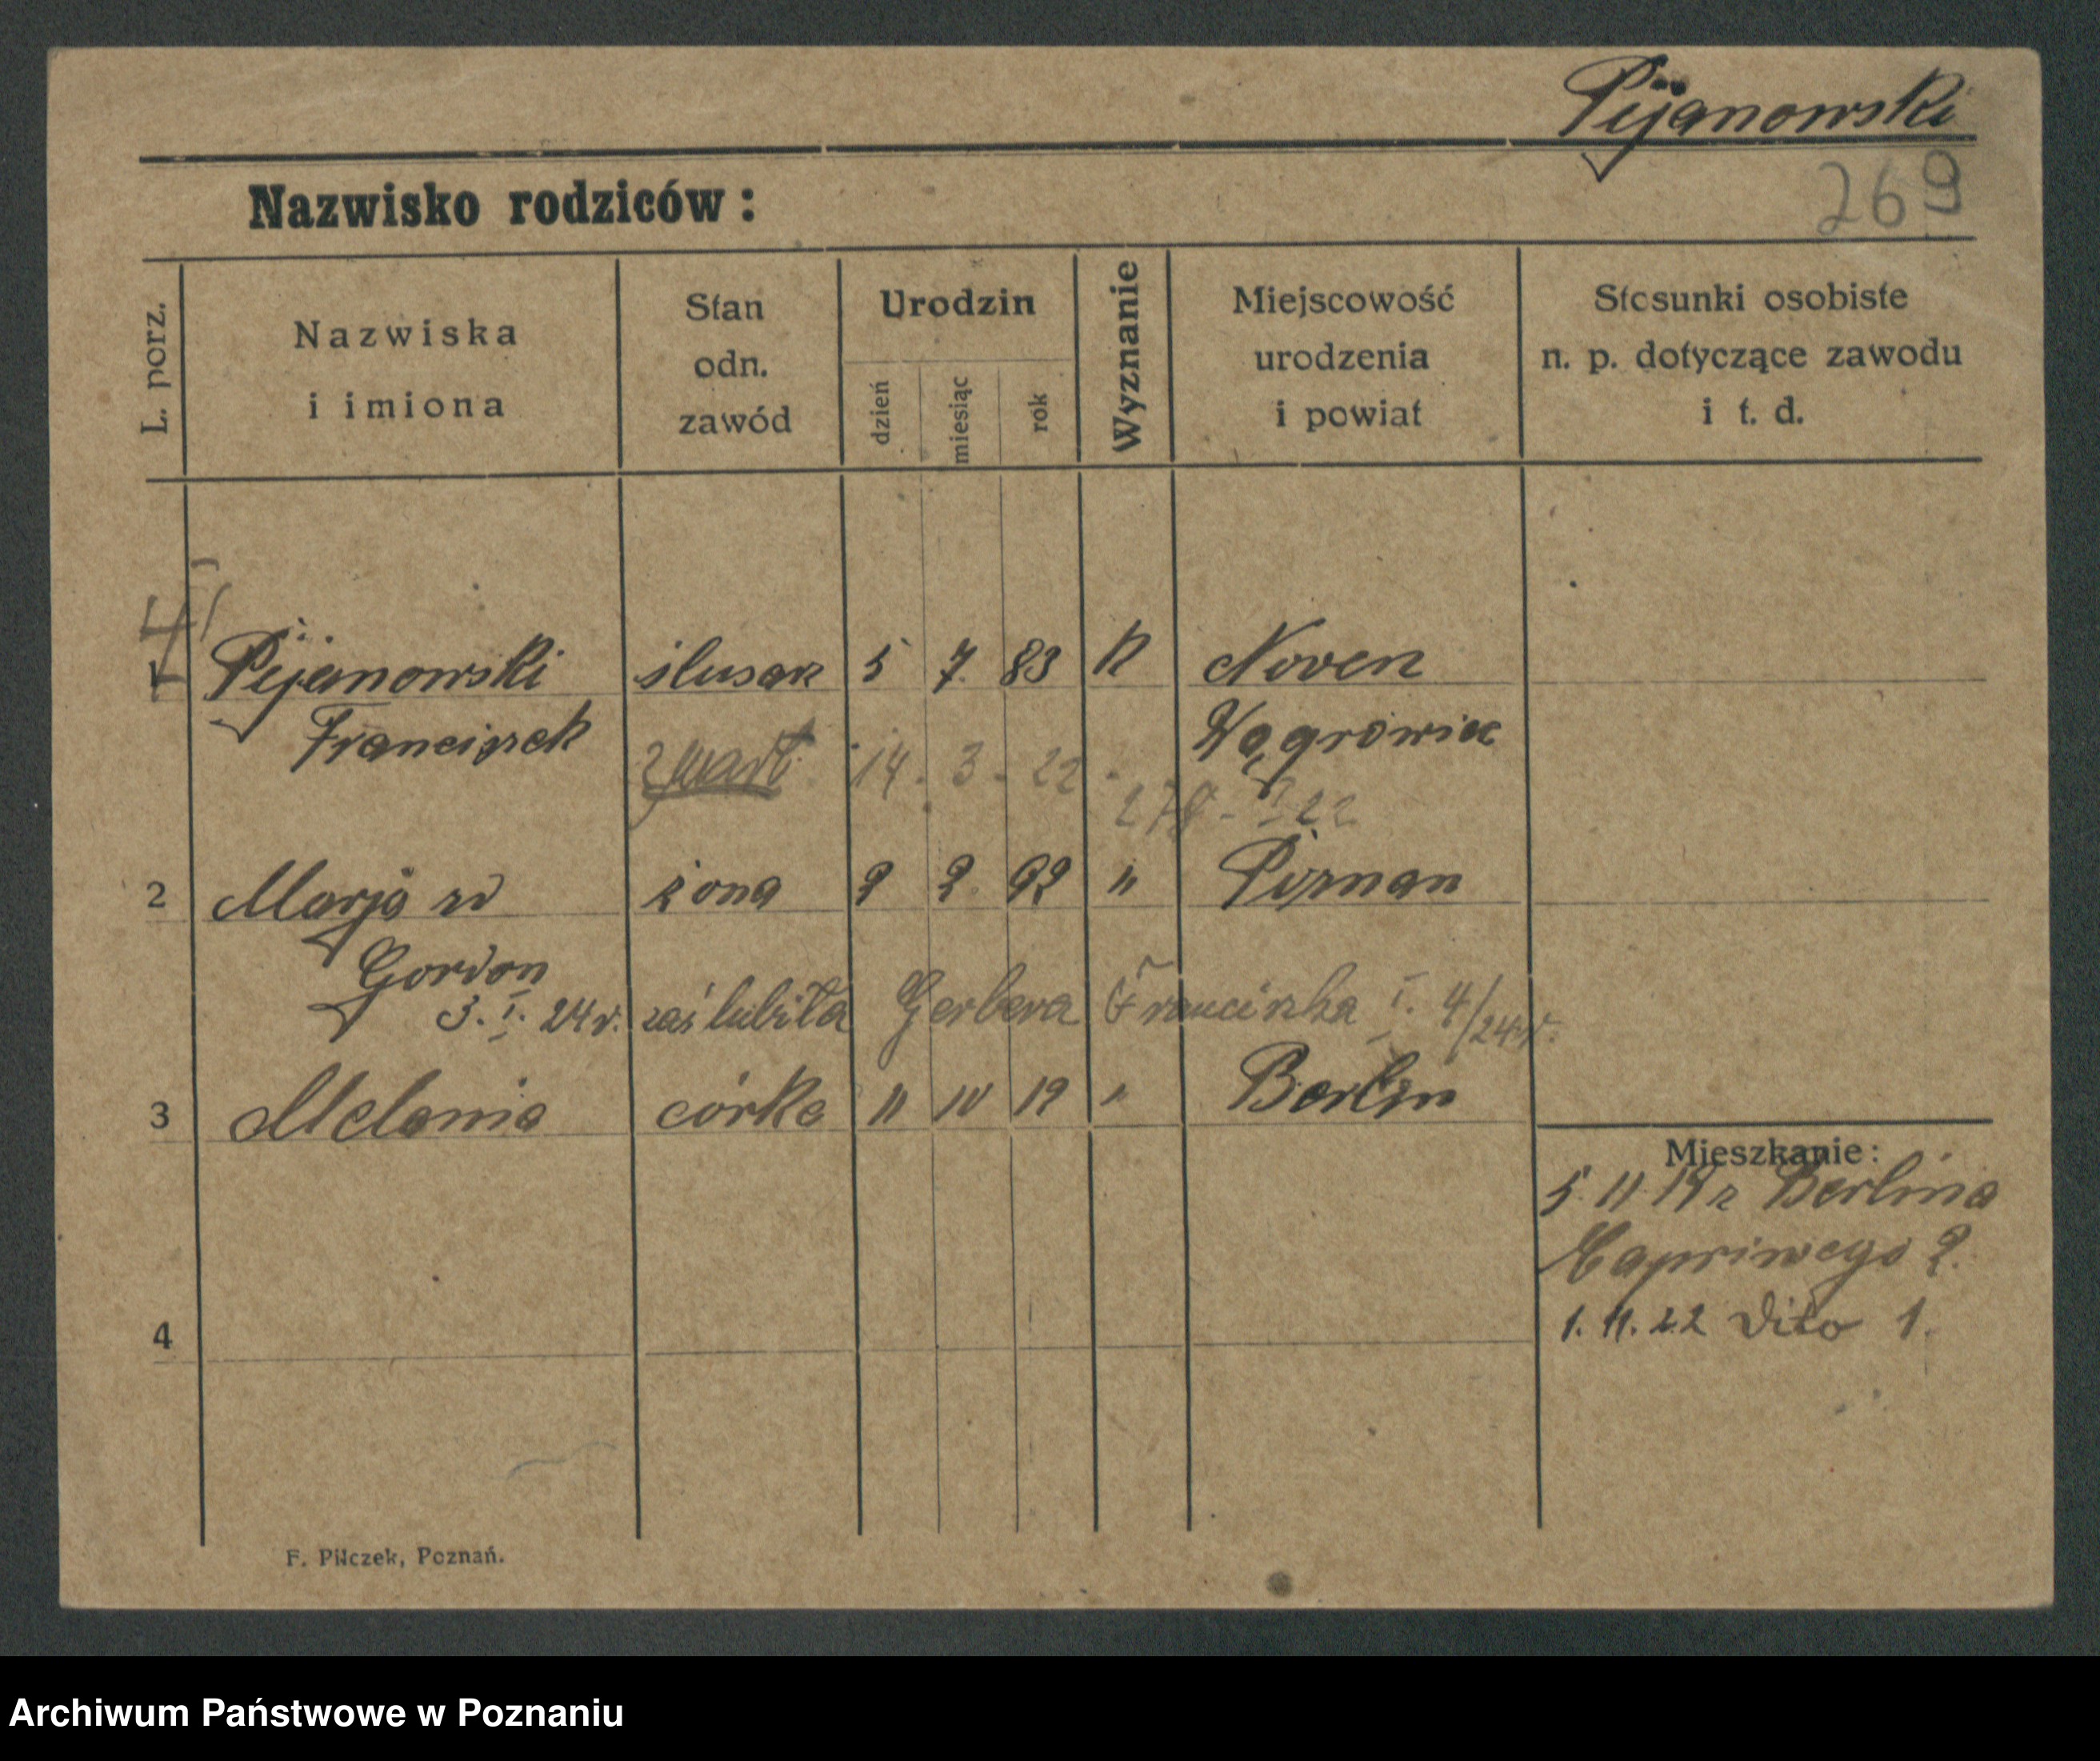 Pijanowski
269
Nazwisko rodziców:
L. porz.
Nazwiska
i imiona
Stan
odn.
zawód
Urodzin
dzień
miesiąc
rok
Wyznanie
Miejscowość
urodzenia
i powiat
Stosunki osobiste
n. p. dotyczące zawodu
i t. d.
1 Pijanowski ślusarz 5 7. 83 K
Franciszek Wągrowiec
zmarł. 14. 3. 22.
2 Marja żona 2 2. 92 " Poznan
Gordon
3. I. 24 r. zaś lubiła Gerbera Franciszka I. 4/24 r.
3 Melania córka 11 10 19 " Berlin
Mieszkanie:
5. 11. 19 z Berlina
Capriwego 2.
1. 11. 22 dito 1.
4
F. Pilczek, Poznań.
Archiwum Państwowe w Poznaniu